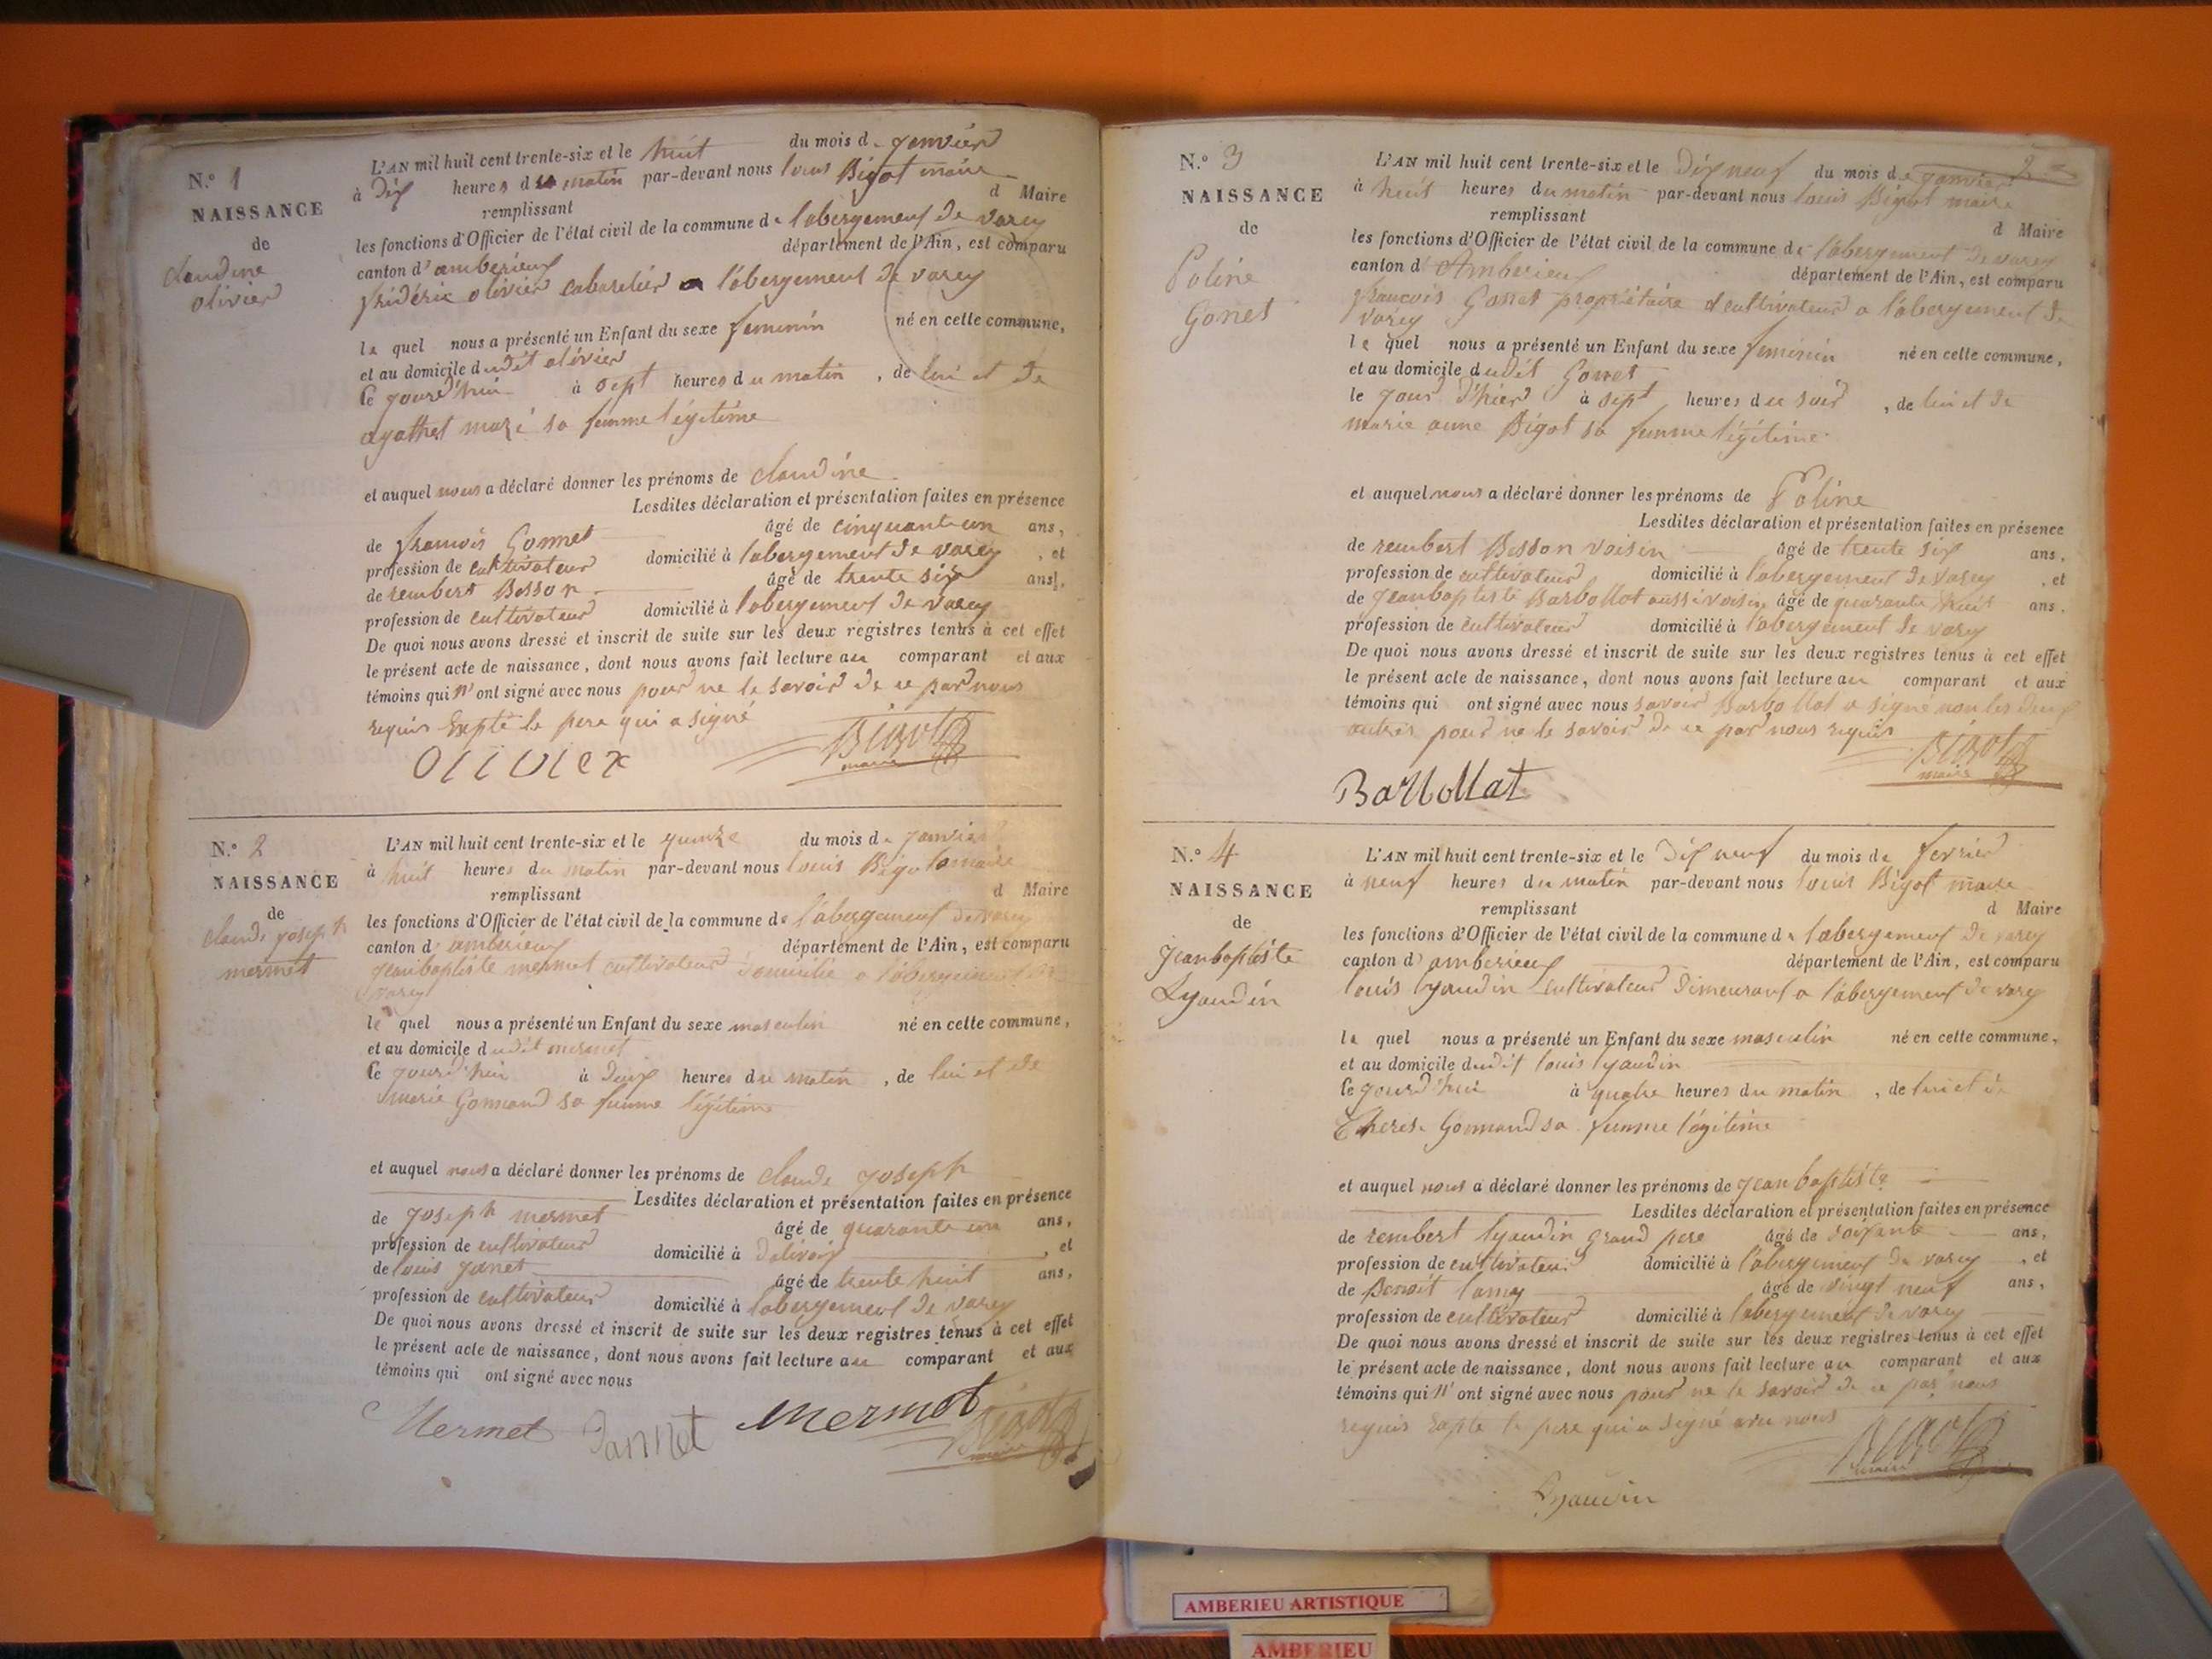 N.º 1
NAISSANCE
de
claudine
olivier
L'AN mil huit cent trente-six et le huit du mois de janvier
à dix heures du matin par-devant nous louis Bigot maire
remplissant d Maire
les fonctions d'Officier de l'état civil de la commune de l'abergement de varey
canton d'amberieux département de l'Ain, est comparu
fridéric olivier cabaretier a l'abergement de varey
le quel nous a présenté un Enfant du sexe feminin né en cette commune,
et au domicile dudit olivier
Ce jourd'hui à sept heures du matin, de lui et de
agathe sa femme légitime
et auquel nous a déclaré donner les prénoms de claudine
Lesdites déclaration et présentation faites en présence
de francois Gonnet âgé de cinquante un ans,
profession de cultivateur domicilié à labergement de varey, et
de rembert Besson âgé de trente six ans,
profession de cultivateur domicilié à labergement de varey
De quoi nous avons dressé et inscrit de suite sur les deux registres tenus à cet effet
le présent acte de naissance, dont nous avons fait lecture au comparant et aux
témoins qui n'ont signé avec nous pour ne le savoir de ce par nous
requis Exptè le pere qui a signé
Ollivier Bigot
maire
N.º 2
NAISSANCE
de
claude joseph
mermet
L'AN mil huit cent trente-six et le quinze du mois de janvier
à huit heures du matin par-devant nous louis Bigot maire
remplissant d Maire
les fonctions d'Officier de l'état civil de la commune de l'abergement de varey
canton d'amberieux département de l'Ain, est comparu
jeanbaptiste mermet cultivateur domicilié a l'abergement de
varey
le quel nous a présenté un Enfant du sexe masculin né en cette commune,
et au domicile dudit mermet
Ce jourd'hui à deux heures du matin, de lui et de
marie Gonnand sa femme légitime
et auquel nous a déclaré donner les prénoms de claude joseph
Lesdites déclaration et présentation faites en présence
de joseph mermet âgé de quarante un ans,
profession de cultivateur domicilié à, et
de louis janet âgé de trente huit ans,
profession de cultivateur domicilié à labergement de varey
De quoi nous avons dressé et inscrit de suite sur les deux registres tenus à cet effet
le présent acte de naissance, dont nous avons fait lecture au comparant et aux
témoins qui ont signé avec nous
Mermet Jannet Mermet Bigot
maire
N.º 3
NAISSANCE
de
Poline
Gonet
L'AN mil huit cent trente-six et le dix neuf du mois de janvier
à huit heures du matin par-devant nous louis Bigot maire
remplissant d Maire
les fonctions d'Officier de l'état civil de la commune de l'abergement de varey
canton d'Amberieux département de l'Ain, est comparu
francois Gonet propriétaire et cultivateur a l'abergement de
varey
le quel nous a présenté un Enfant du sexe feminin né en cette commune,
et au domicile dudit Gonet
le jour d'hier à sept heures du soir, de lui et de
marie anne Bigot sa femme légitime
et auquel nous a déclaré donner les prénoms de Poline
Lesdites déclaration et présentation faites en présence
de rembert Besson voisin âgé de trente six ans,
profession de cultivateur domicilié à l'abergement de varey, et
de jeanbaptiste Barbollat aussi voisin âgé de quarante huit ans,
profession de cultivateur domicilié à l'abergement de varey
De quoi nous avons dressé et inscrit de suite sur les deux registres tenus à cet effet
le présent acte de naissance, dont nous avons fait lecture au comparant et aux
témoins qui ont signé avec nous savoir Barbollat a signé non les deux
autres pour ne le savoir de ce par nous requis
Barbollat Bigot
maire
N.º 4
NAISSANCE
de
jeanbaptiste
Lyaudin
L'AN mil huit cent trente-six et le dix neuf du mois de fevrier
à neuf heures du matin par-devant nous louis Bigot maire
remplissant d Maire
les fonctions d'Officier de l'état civil de la commune de l'abergement de varey
canton d'amberieux département de l'Ain, est comparu
louis lyaudin cultivateur demeurant a l'abergement de varey
le quel nous a présenté un Enfant du sexe masculin né en cette commune,
et au domicile dudit louis lyaudin
Ce jourd'hui à quatre heures du matin, de lui et de
Therese Gonnand sa femme légitime
et auquel nous a déclaré donner les prénoms de jean baptiste
Lesdites déclaration et présentation faites en présence
de rembert lyaudin grand pere âgé de soixante ans,
profession de cultivateur domicilié à l'abergement de varey, et
de Benoit lamy âgé de vingt neuf ans,
profession de cultivateur domicilié à l'abergement de varey
De quoi nous avons dressé et inscrit de suite sur les deux registres tenus à cet effet
le présent acte de naissance, dont nous avons fait lecture au comparant et aux
témoins qui n'ont signé avec nous pour ne le savoir de ce par nous
requis Expte le pere qui a signé avec nous
Bigot
maire
Lyaudin
AMBERIEU ARTISTIQUE
AMBERIEU